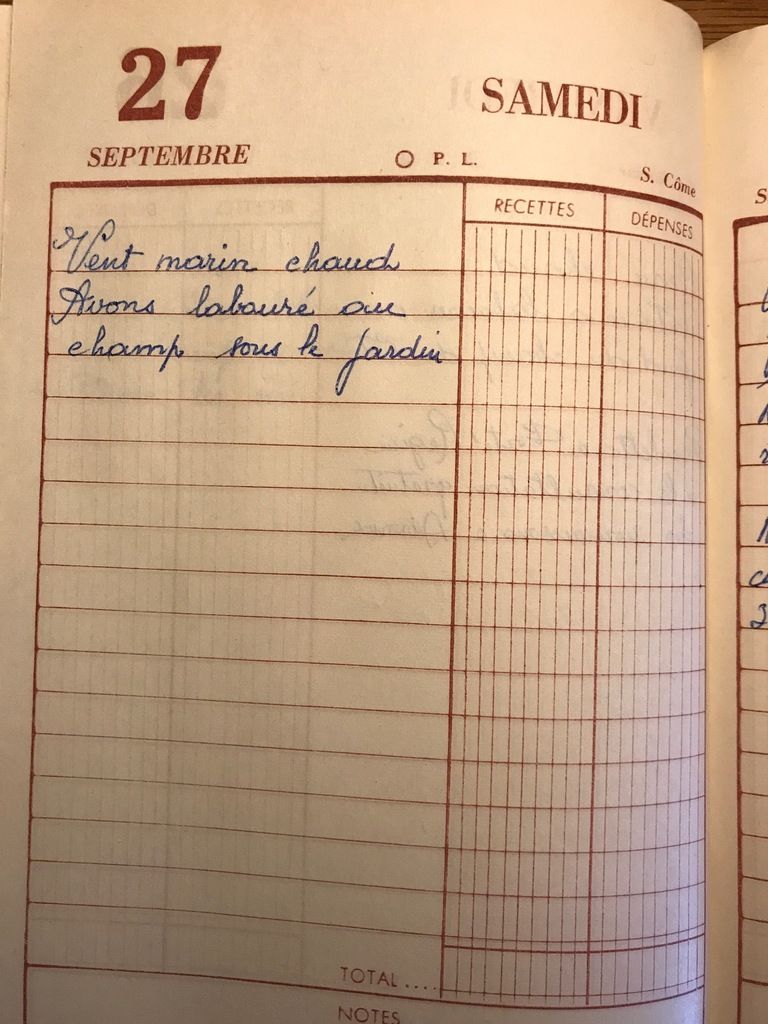 27
SAMEDI
SEPTEMBRE
P. L.
S. Côme
RECETTES
DÉPENSES
Vent marin chaud
Avons labouré au
champ sous le jardin
TOTAL ....
NOTES